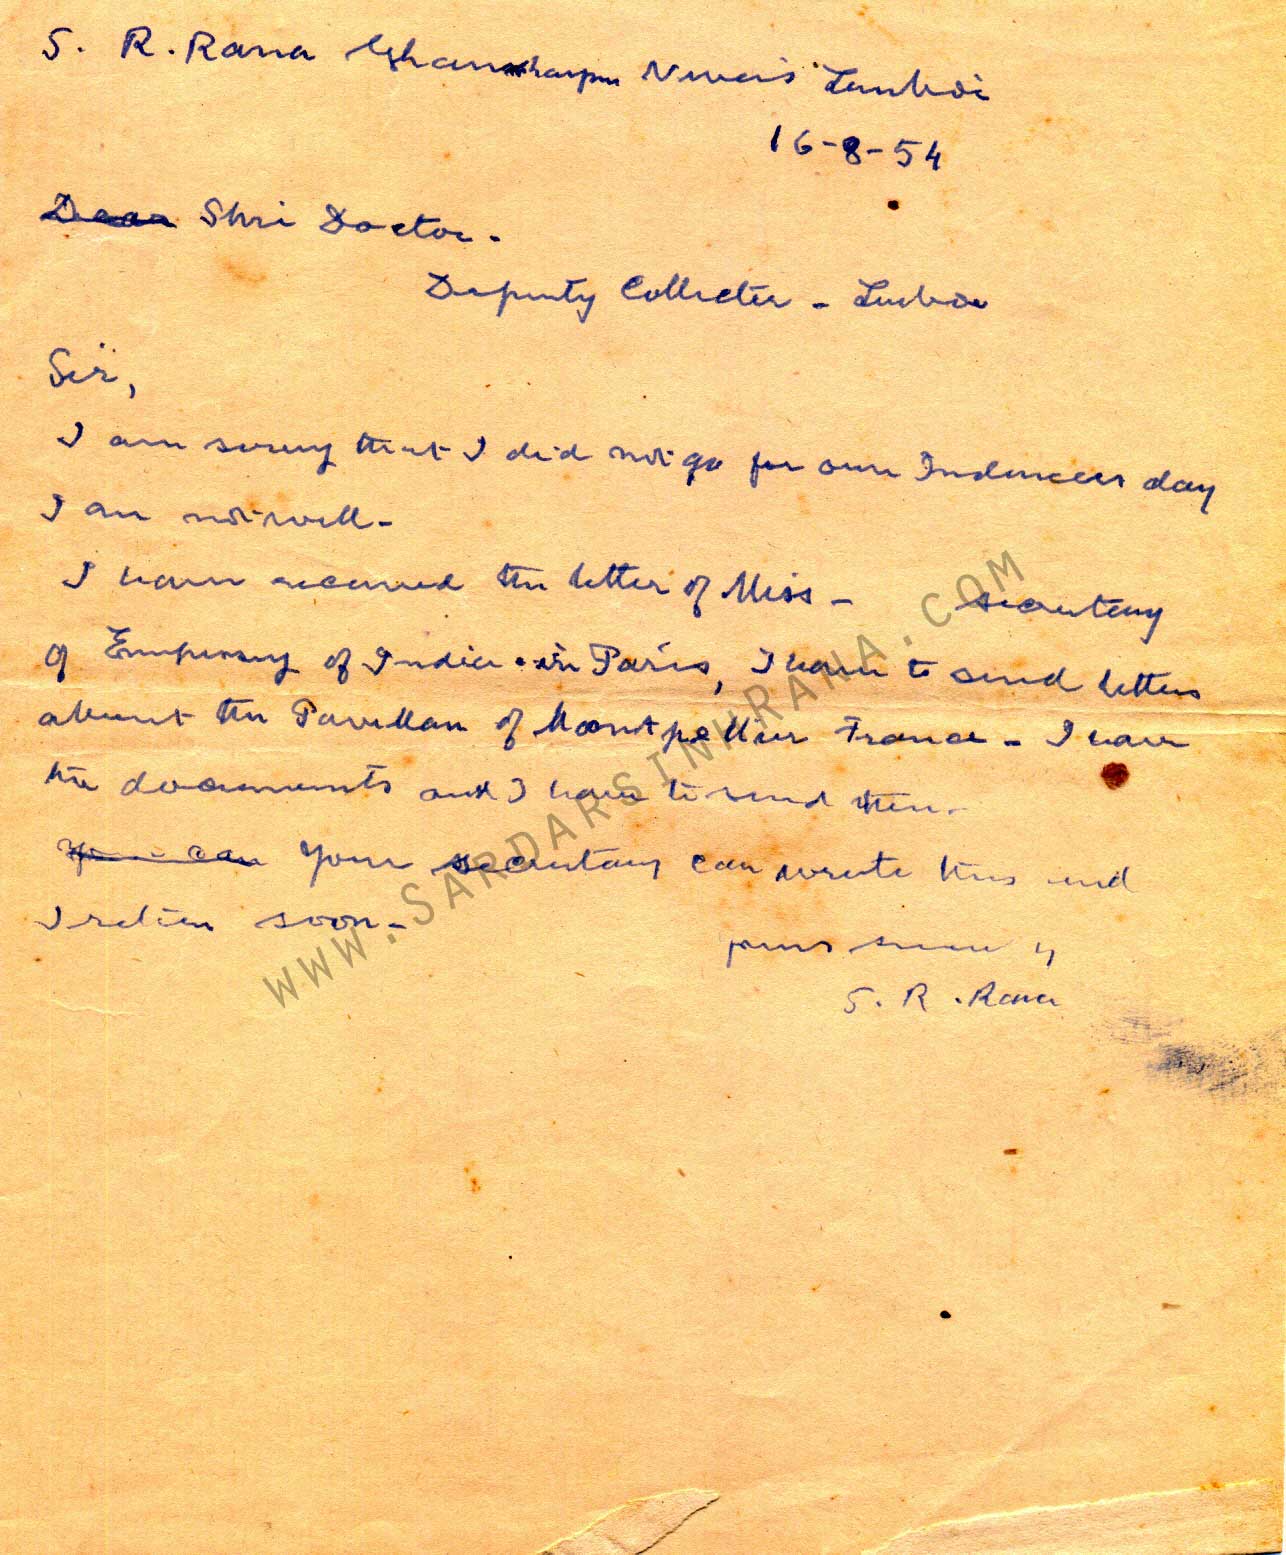 S. R. Rana Nivas Limbdi
16-8-54
Dear Shri Doctor.
Deputy Collecter - Limbdi
Sir,
I am sorry that I did not go for our day
I am not well-
I have received the letter of Miss - secretary
of of India in Paris, I have to send letters
about the Pavillan of Montpellier France - I have
the documents and I have to send them-
can Your secretary can write this and
I soon-
yours
S. R. Rana
WWW.SARDARSINHRANA.COM